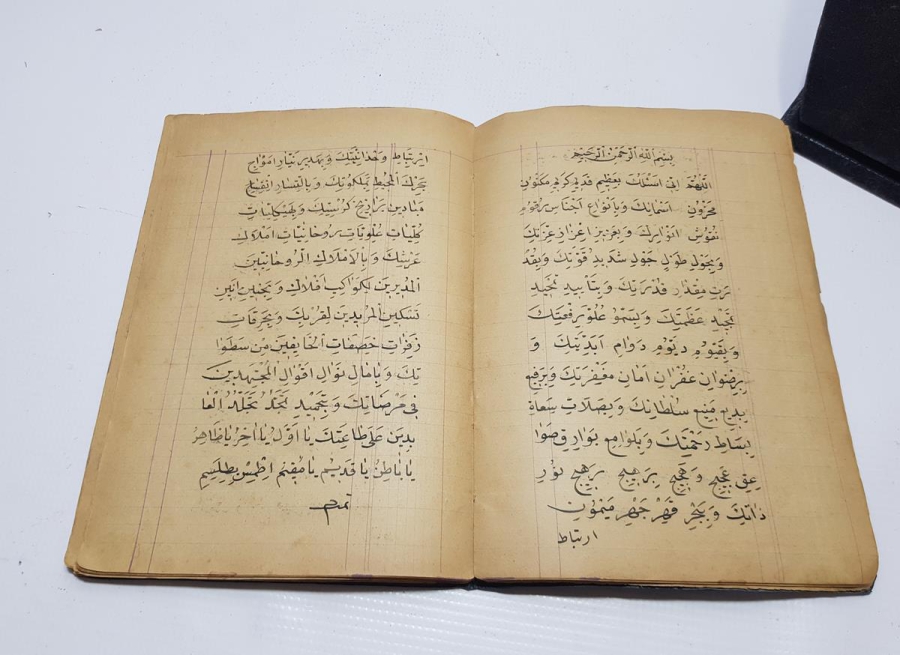 بسم الله الرحمن الرحيم
اللهم اني اسئلك بعظيم قديم كريم مكنون
مخزون اسمائك وبانواع اجناس رقوم
نقوش انوارك وبعزيز اعزاز عزتك
وبحول طول حول شديد قوتك وبقد
رت مقدار قدرتك وبتاييد تحميد
تمجيد عظمتك وبسمو علو رفعتك
وبقيوم ديوم دوام ابديتك و
برضوان غفران امان مغفرتك وبرفيع
بديع منيع سلطانك وبصلات سعاة
بساط رحمتك وبلوامع بوارق صوا
عق عجيج وهجيج بهيج رهيج نور
ذاتك وببحر قهر جهر ميمون
ارتباط
ارتباط وحدانيتك وبهدير تيار امواج
بحرك المحيط بملكوتك وبانفساح
ميادين برازخ كرسيك وبهيكليات
كليات علويات روحانيات املاك
عرشك وبالاملاك الروحانيين
المديرين بكواكب افلاك وبحنين انين
تسكين المريدين لقربك وبحرقات
زفرات خضعات الخائفين من سطوا
تك وبامال نوال اقوال المجتهدين
في مرضاتك وبتحميد تمجد تجلد العا
بدين على طاعتك يا اول يا اخر يا ظاهر
يا باطن يا قديم يا مقيم اطمس بطلسم